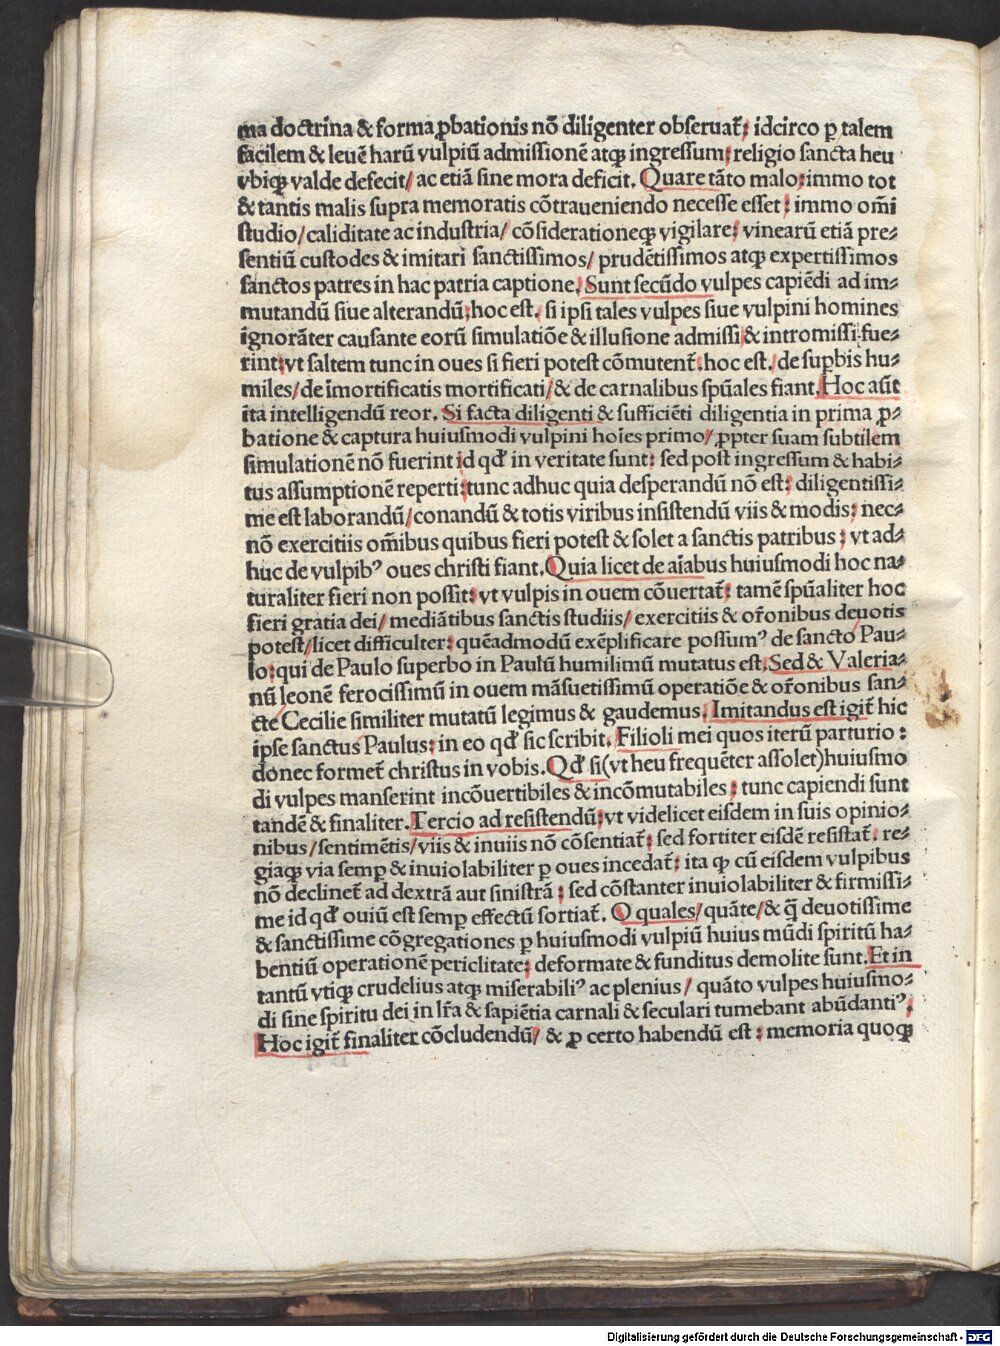 ma doctrina & forma ꝓbationis nō diligenter obſeruat᷑; idcirco ꝑ talem
facilem & leuē harū vulpiū admiſſionē atqꝫ ingreſſum; religio ſancta heu
vbiqꝫ valde defecit/ ac etiā ſine mora deficit. Quare tāto malo; immo tot
& tantis malis ſupra memoratis cōtraueniendo neceſſe eſſet: immo om̄i
ſtudio/ caliditate ac induſtria/ cōſiderationeqꝫ vigilare; vinearū etiā pre⸗
ſentiū cuſtodes & imitari ſanctiſſimos/ prudētiſſimos atqꝫ expertiſſimos
ſanctos patres in hac patria captione. Sunt ſecūdo vulpes capiēdi ad im⸗
mutandū ſiue alterandū; hoc eſt. ſi ipſi tales vulpes ſiue vulpini homines
ignorāter cauſante eorū ſimulatiōe & illuſione admiſſi & intromiſſi fue⸗
rint; vt ſaltem tunc in oues ſi fieri poteſt cōmutent᷑: hoc eſt. de ſuꝑbis hu⸗
miles/ de īmortificatis mortificati/ & de carnalibus ſpūales fiant. Hoc aūt
ita intelligendū reor. Si facta diligenti & ſufficiēti diligentia in prima ꝓ⸗
batione & captura huiuſmodi vulpini hoīes primo/ ꝓpter ſuam ſubtilem
ſimulationē nō fuerint id qd̓ in veritate ſunt: ſed poſt ingreſſum & habi⸗
tus aſſumptionē reperti; tunc adhuc quia deſperandū nō eſt; diligentiſſi⸗
me eſt laborandū/ conandū & totis viribus inſiſtendū viis & modis; nec⸗
nō exercitiis om̄ibus quibus fieri poteſt & ſolet a ſanctis patribus; vt ad⸗
huc de vulpibꝰ oues chriſti fiant. Quia licet de aīabus huiuſmodi hoc na⸗
turaliter fieri non poſſit; vt vulpis in ouem cōuertat᷑; tamē ſpūaliter hoc
fieri gratia dei/ mediātibus ſanctis ſtudiis/ exercitiis & or̄onibus deuotis
poteſt/ licet difficulter: quēadmodū exēplificare poſſumꝰ de ſancto Pau⸗
lo; qui de Paulo ſuperbo in Paulū humilimū mutatus eſt. Sed & Valeria⸗
nū leonē ferociſſimū in ouem māſuetiſſimū operatiōe & or̄onibus ſan⸗
cte Cecilie ſimiliter mutatū legimus & gaudemus. Imitandus eſt igit᷑ hic
ipſe ſanctus Paulus; in eo qd̓ ſic ſcribit. Filioli mei quos iterū parturio:
donec formet᷑ chriſtus in vobis. Qd̓ ſi (vt heu frequēter aſſolet) huiuſmo
di vulpes manſerint incōuertibiles & incōmutabiles; tunc capiendi ſunt
tandē & finaliter. Tercio ad reſiſtendū; vt videlicet eiſdem in ſuis opinio⸗
nibus/ ſentimētis/ viis & inuiis nō cōſentiat᷑; ſed fortiter eiſdē reſiſtat᷑. re⸗
giaqꝫ via ſemꝑ & inuiolabiliter ꝑ oues incedat᷑; ita ꝙ cū eiſdem vulpibus
nō declinet᷑ ad dextrā aut ſiniſtrā; ſed cōſtanter inuiolabiliter & firmiſſi⸗
me id qd̓ ouiū eſt ſemꝑ effectū ſortiat᷑. O quales/ quāte/ & q̄ deuotiſſime
& ſanctiſſime cōgregationes ꝑ huiuſmodi vulpiū huius mūdi ſpiritū ha⸗
bentiū operationē periclitate; deformate & funditus demolite ſunt. Et in
tantū vtiqꝫ crudelius atqꝫ miſerabiliꝰ ac plenius/ quāto vulpes huiuſmo⸗
di ſine ſpiritu dei in lr̄a & ſapiētia carnali & ſeculari tumebant abūdantiꝰ.
Hoc igit᷑ finaliter cōcludendū/ & ꝓ certo habendū eſt: memoria quoqꝫ
Digitalisierung gefördert durch die Deutsche Forschungsgemeinschaft - DFG